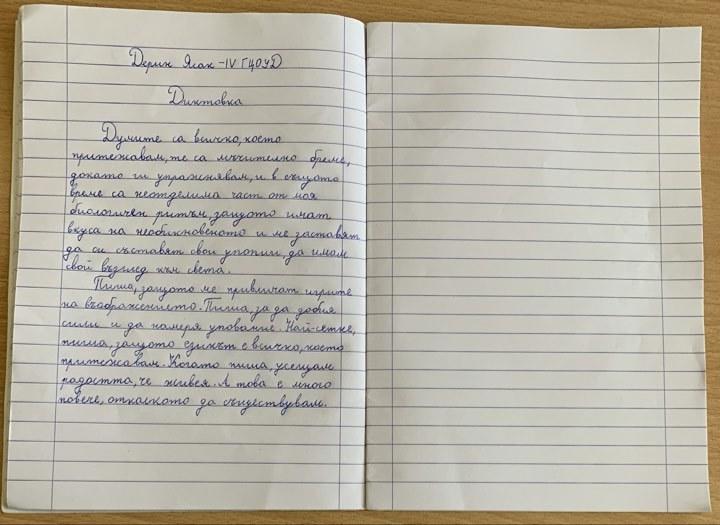 Дерин Ясак - IV ГЦОУД
Диктовка
Думите са всичко, което
притежавам, те са мъчително бреме,
докато ги упражнявам, и в същото
време са неотделима част от моя
биологичен ритъм, защото имат
вкуса на необикновеното и ме заставят
да си съставят свои утопии, да имам
свой възглед към света.
Пиша, защото ме привличат игрите
на въображението. Пиша, за да добия
сили и да намеря упование. Най-сетне,
пиша, защото езикът е всичко, което
притежавам. Когато пиша, усещам
радостта, че живея. А това е много
повече, отколкото да съществувам.